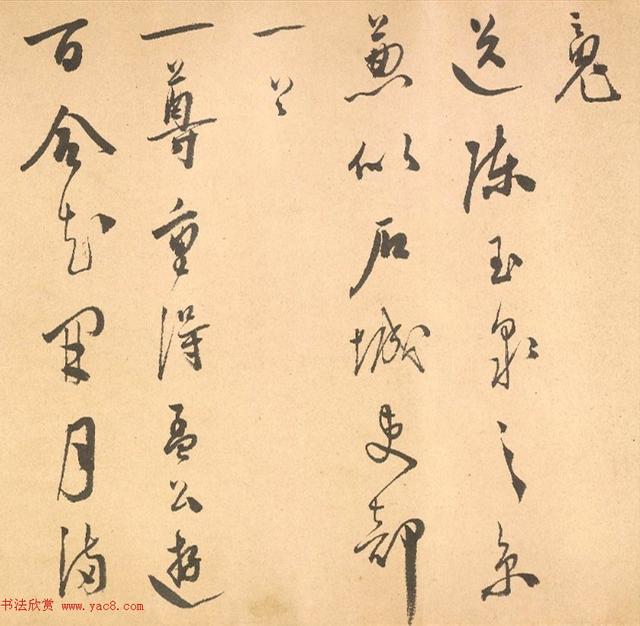 竟
送陳玉泉之京
兼似石城吏部
一首
一尊重得孟公遊
百合花開月滿
书法欣赏 www.yac8.com